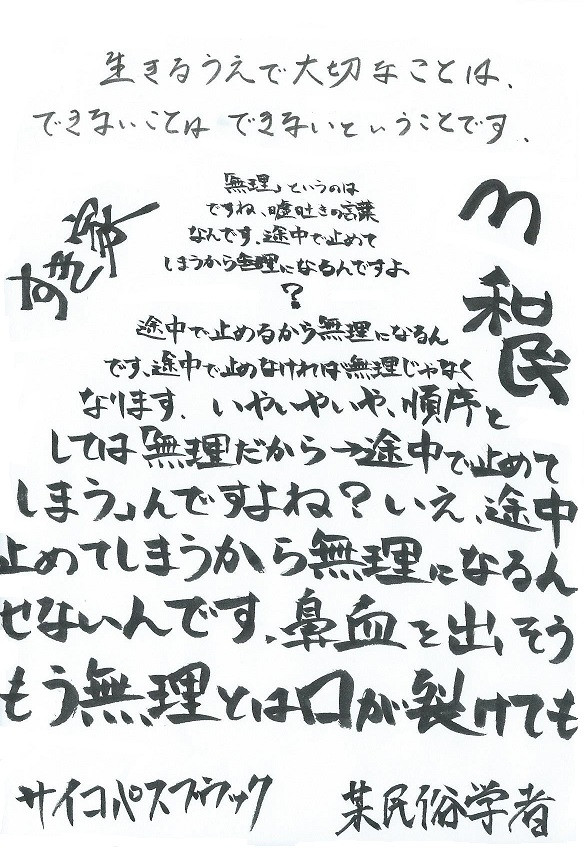 生きるうえで大切なことは、
できないことは できないということです。
すき家
M
和民
「無理」というのは
ですね、嘘吐きの言葉
なんです。途中で止めて
しまうから無理になるんですよ
?
途中で止めるから無理になるん
です。途中で止めなければ無理じゃなく
なります。いやいやいや、順序と
しては「無理だから→途中で止めて
しまう」んですよね?いえ、途中
止めてしまうから無理になるん
せないんです。鼻血を出、そう
もう無理とは口が裂けても
サイコパスブラック
某民俗学者